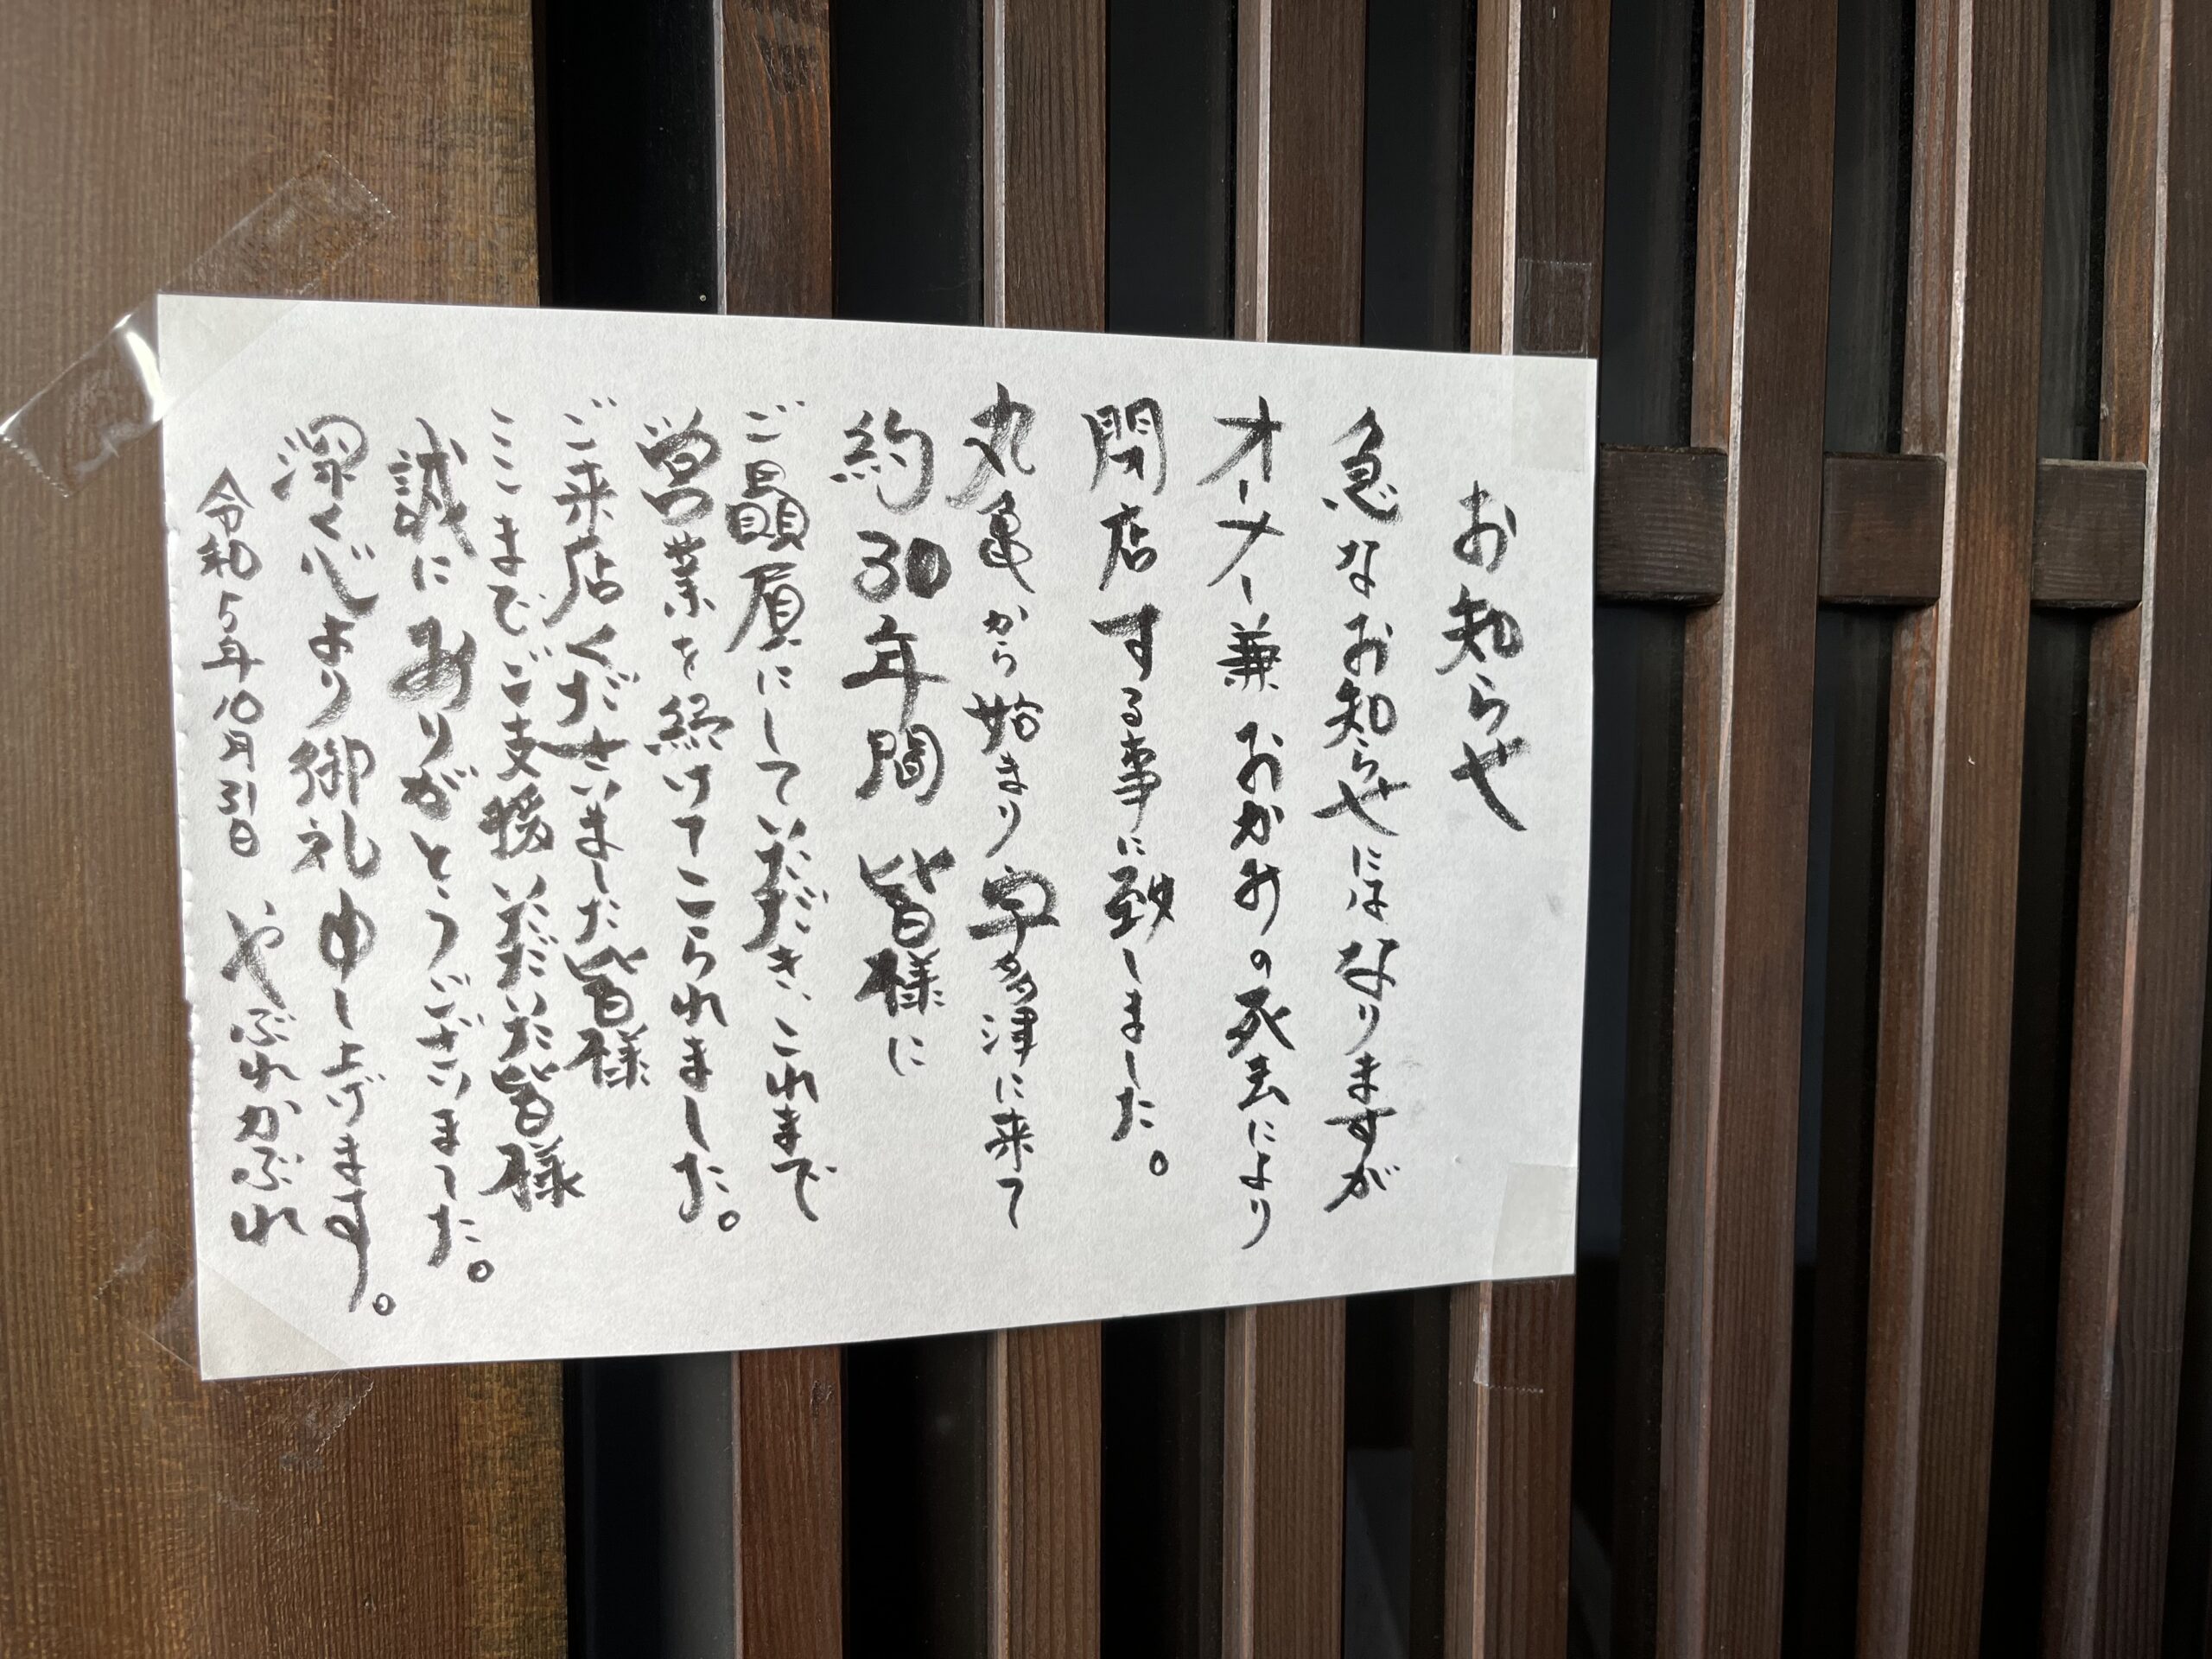 お知らせ
急なお知らせにはなりますが
オーナー兼おかあの死去により
閉店する事に致しました。
丸亀から始まり宇多津に来て
約30年間 皆様に
ご贔屓にしていただき、これまで
営業を続けてこられました。
ご来店くださいました皆様
ここまでご支援いただいた皆様
誠にありがとうございました。
深く心より御礼申し上げます。
令和5年10月31日 やぶれかぶれ